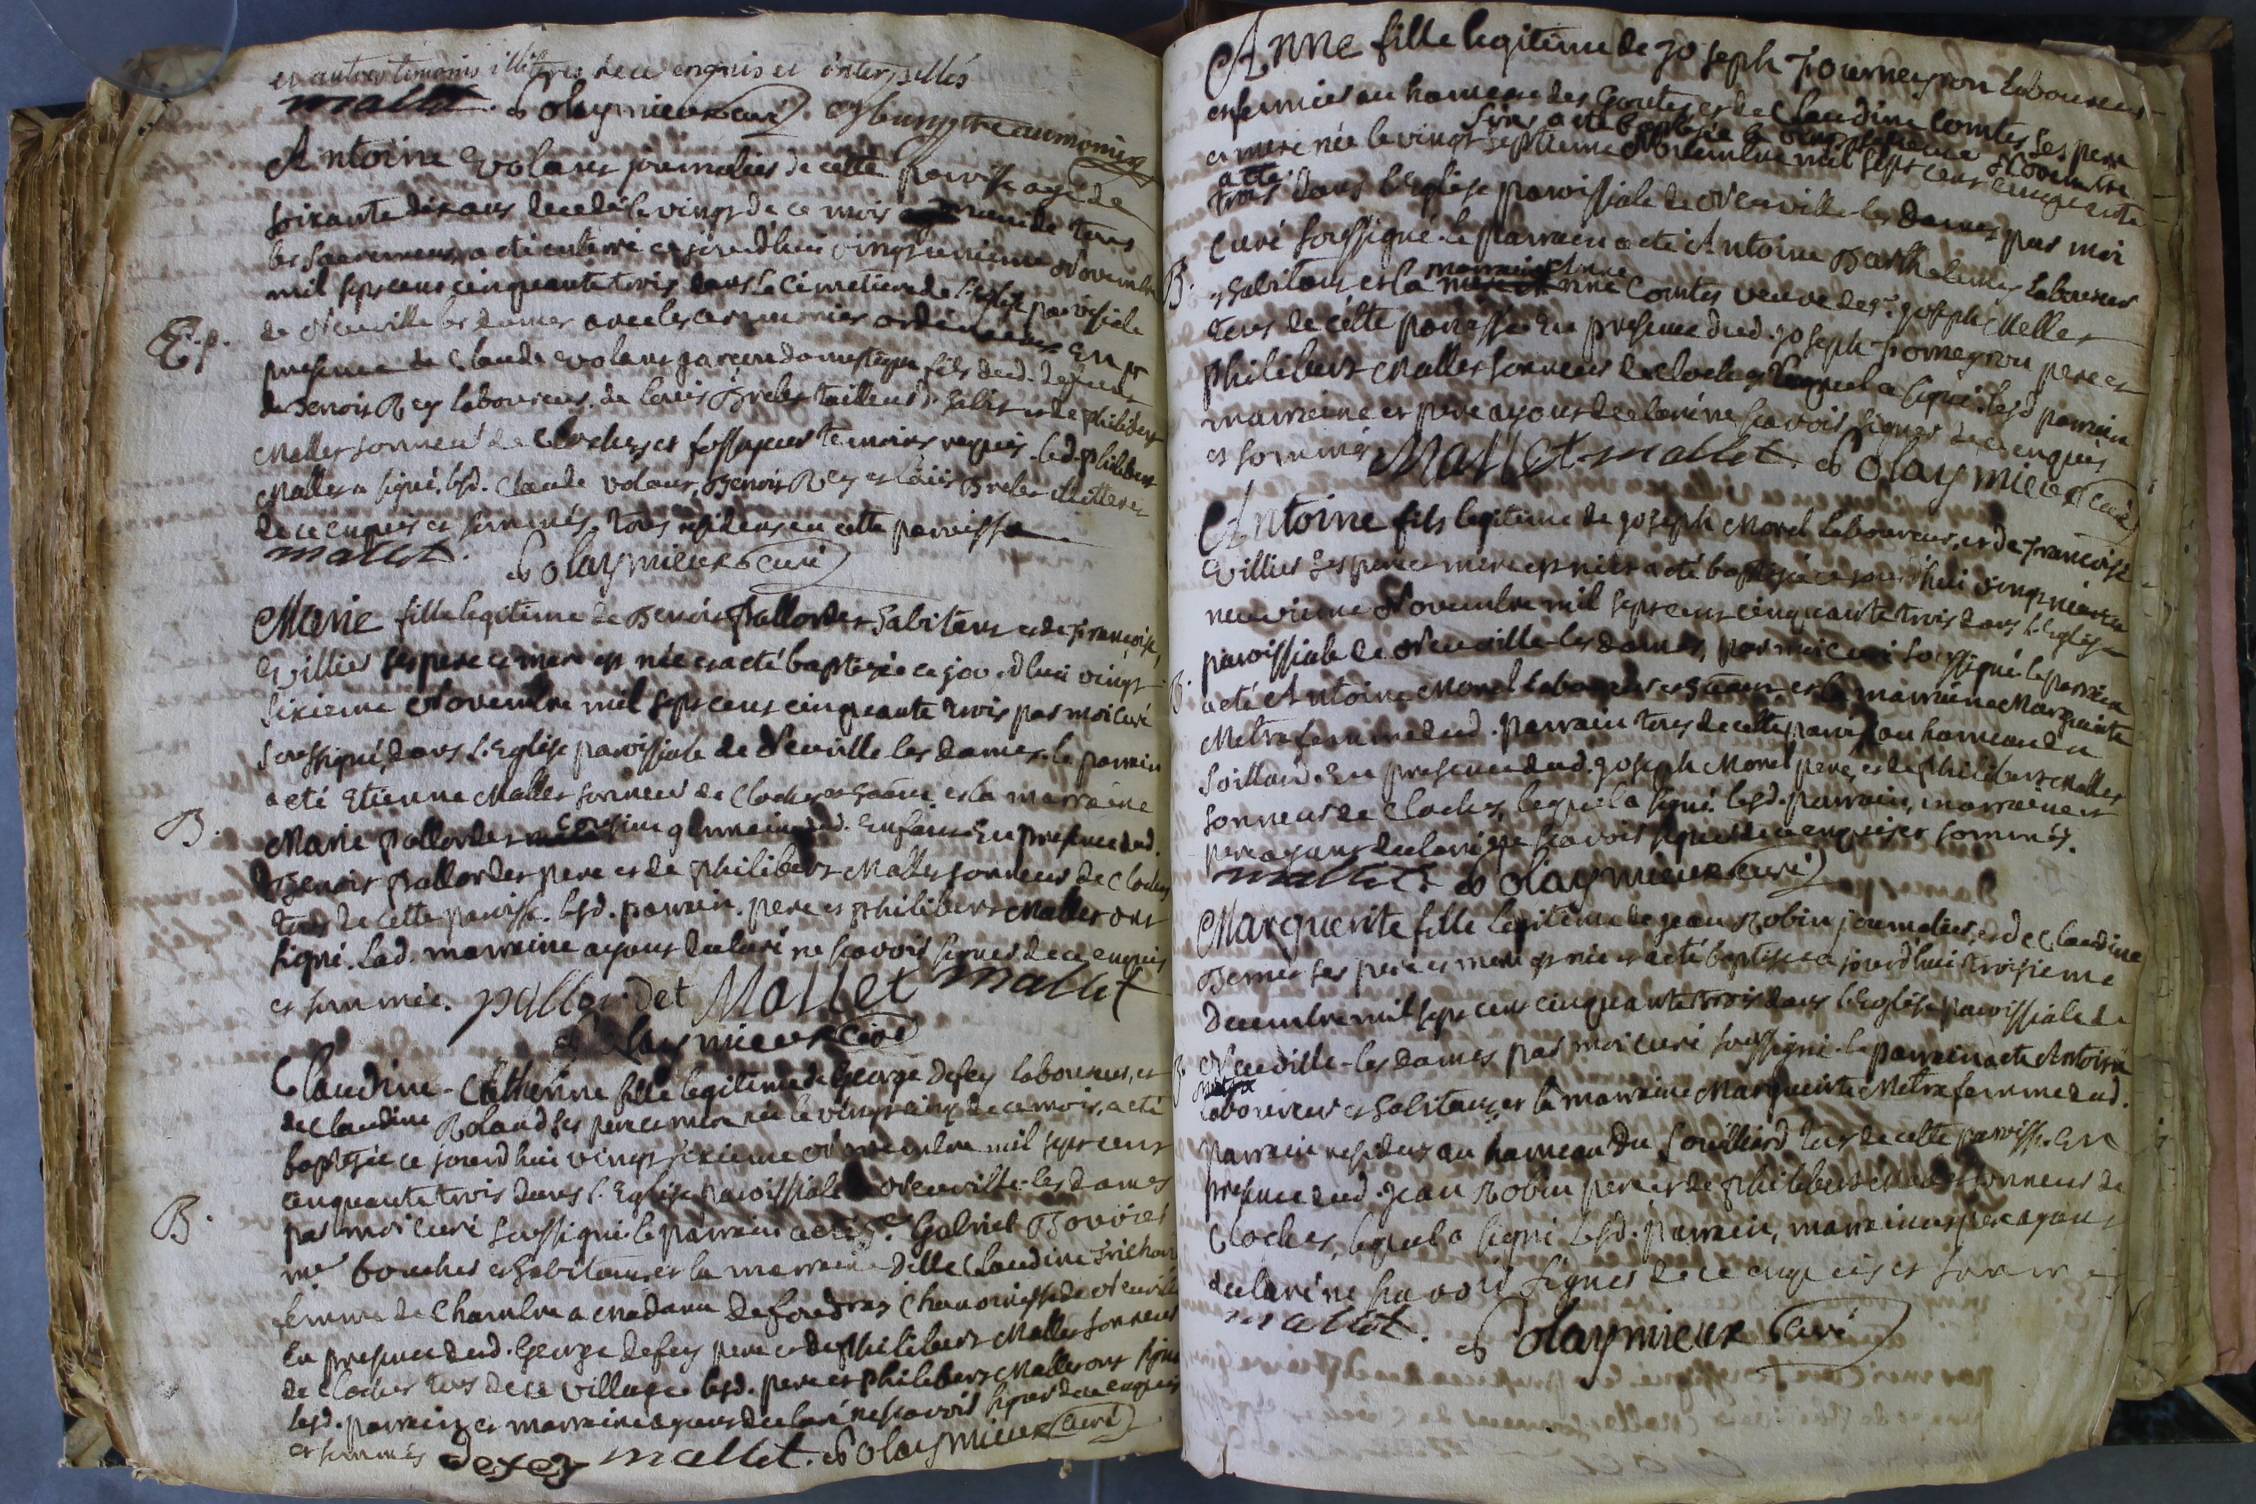 et autres temoins illitrés de ce enquis et interpellés
mallet. Dolaymieux curé.
Antoine Volant journalier de cette paroisse agé de
soixante dix ans decedé le vingt de ce mois muni de tous
les sacremens, a eté enterré ce jourd'hui vingtunieme Novembre
mil sept cent cinquante trois dans le Cimetiere de l'eglise paroissiale
de Neuville les dames avec les ceremonies ordinaires En
E.p.
presence de Claude Volant garçon domestique fils dud. defunt
de Benoit Rey laboureur, de Louis Brelet tailleur d'habit et de philibert
Mallet sonneur de Cloches et fossoyeur temoins requis. led. philibert
Mallet a signé, lesd. Claude Volant, Benoit Rey et Loüis Brelet illitteres
de ce enquis et sommés. tous residens en cette paroisse
mallet. Dolaymieux curé
Marie fille legitime de Benoit Pallordet habitant et de Françoise
Villier ses pere et mere est née et a eté baptisée ce jourd'hui vingt
sixieme Novembre mil sept cent cinquante trois par moi curé
soussigné, dans l'Eglise paroissiale de Neuville les dames. le parrain
a eté Etienne Mallet sonneur de Cloches et la marraine
B.
Marie pallordet cousine germaine dud. Enfant En presence dud.
Benoit pallordet pere et de philibert Mallet sonneur de Cloches
tous de cette paroisse. lesd. parrain. pere et philibert Mallet ont
signé. Lad. marraine ayant declaré ne scavoir signer de ce enquis
et sommée. pallordet Mallet mallet
Dolaymieux curé
Claudine-Catherine fille legitime de George Defey laboureur, et
de Claudine Roland ses pere et mere née le vingt cinq de ce mois, a eté
baptisée ce jourd'hui vingt sixieme Novembre mil sept cent
cinquante trois dans l'Eglise paroissiale de Neuville-les dames
B.
par moi curé soussigné. le parrain a eté Sr. Gabriel Bouvier
me boucher et habitant, et la marraine Dlle Claudine
femme de Chambre a Madame de foudras Chanoinesse de Neuville
En presence dud. George defey pere et de philibert Mallet sonneur
de Cloches tous de ce village lesd. pere et philibert Mallet ont signé
lesd. parrain et marraine ayant declaré ne scavoir signer de ce enquis
et sommés defey mallet. Dolaymieux curé
Anne fille legitime de Joseph Fourneyron laboureur
et fermier au hameau des Goutes et de Claudine Comtes ses pere
et mere née le vingt septieme Novembre mil sept cent cinquante
trois a eté baptisée le vingt septieme Novembre
a eté
trois dans l'Eglise paroissiale de Neuville-les Dames par moi
Curé soussigné. le parrain a eté Antoine Barthelemy laboureur
B.
marraine Anne
et habitant et la Comtes veuve de Sr. Joseph Mellet
tous de cette paroisse En presence dud. Joseph Forneyron pere et
Philibert Mallet sonneur de cloches lequel a signé. lesd parrain
marraine et pere ayant declaré ne scavoir signer de ce enquis
et sommés Mallet mallet. Dolaymieux curé
Antoine fils legitime de Joseph Morel laboureur, et de Françoise
Villier ses pere et mere est né et a eté baptisé ce jourd'hui vingt
neuvieme Novembre mil sept cent cinquante trois dans l'Eglise
paroissiale de Neuville-les dames, par moi curé soussigné. le parrain
B.
a eté Antoine Morel laboureur et la marraine Marguerite
Metra femme dud. parrain tous de cette paroisse au hameau du
Soillard. En presence dud. Joseph Morel pere, et de philibert Mallet
sonneur de Cloches, lequel a signé. lesd. parrain, marraine et
pere ayant declaré ne scavoir signer de ce enquis et sommés.
mallet. Dolaymieux curé
Marguerite fille legitime de Jean Robin journalier, et de Claudine
Bernet ses pere et mere est née et a eté baptisée ce jourd'hui troisieme
Decembre mil sept cent cinquante trois dans l'Eglise paroissiale de
B.
Neuville-les dames par moi curé soussigné. le parrain a eté Antoine
laboureur et habitant, et la marraine Marguerite Metra femme dud.
parrain residens au hameau du Souilliard tous de cette paroisse. En
presence dud. Jean Robin pere et de philibert Mallet sonneur de
Cloches, lequel a signé lesd. parrain, marraine et pere ayant
declaré ne scavoir signer de ce enquis et sommés
mallet. Dolaymieux curé